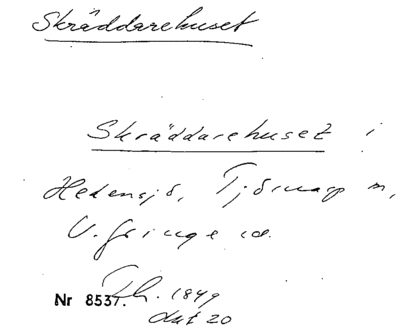 Skräddarehuset
Skräddarehuset i
Hedensjö, Tjörnarp sn,
V. Göinge hd.
Th. 1849
Nr 8537.
dat 20